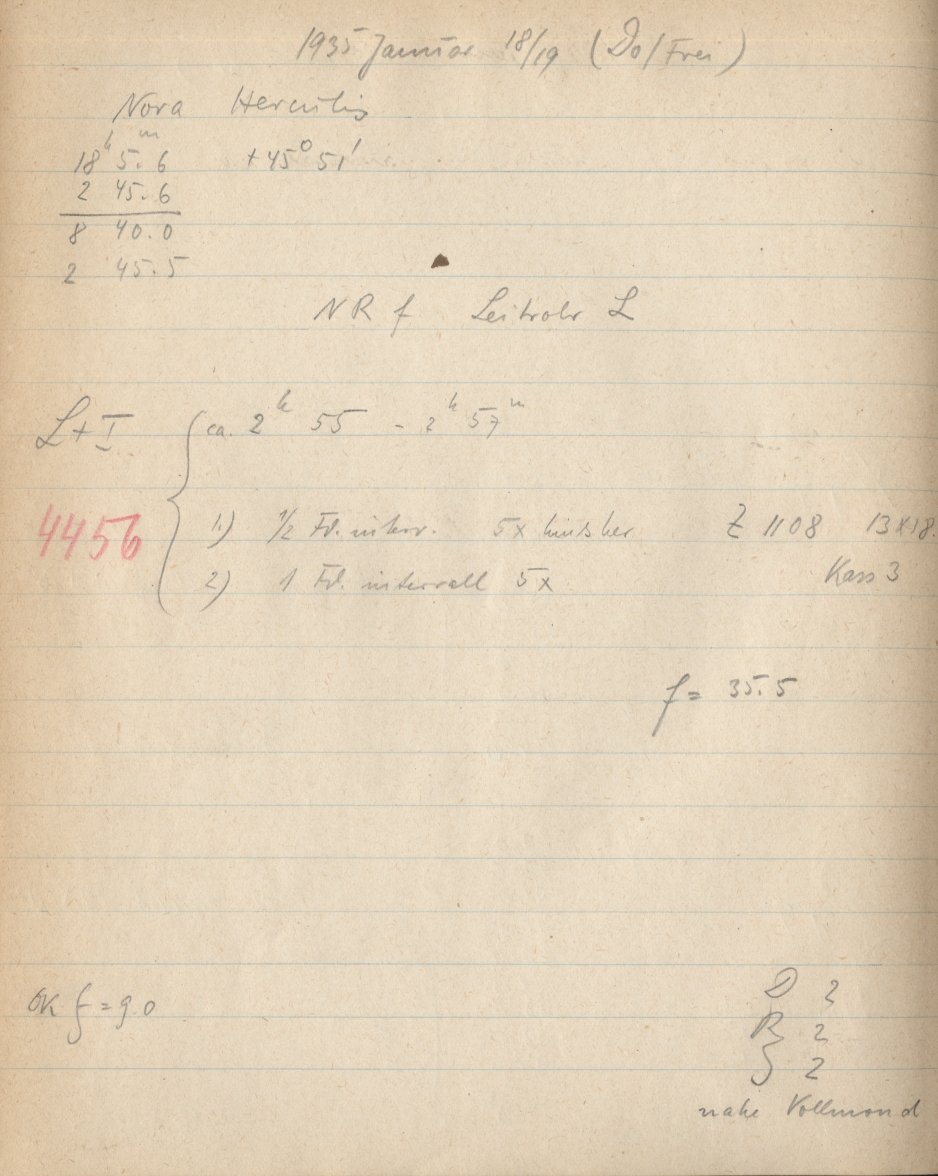 1935 Januar 18/19 (Do/Frei)
Nova Herculis
18h 5.6m +45° 51'
2 45.6
8 40.0
2 45.5
NR f Leitrohr L
L+I ca. 2h 55 - 2h 57m
4456
1.) 1/2 Fd. interv. 5x hin u. her Z 1108 13x18
2) 1 Fd. intervall 5x Kass 3
f = 35.5
OK f = 9.0
D 2
R 2
2
nahe Vollmond